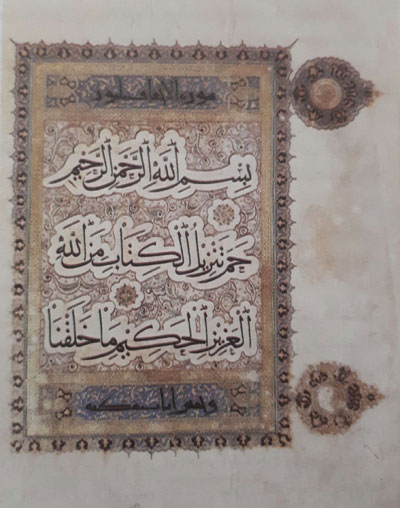 سورة
بِسْمِ اللَّهِ الرَّحْمَنِ الرَّحِيمِ
حم تَنْزِيلُ الْكِتَابِ مِنَ اللَّهِ
الْعَزِيزِ الْحَكِيمِ مَا خَلَقْنَا